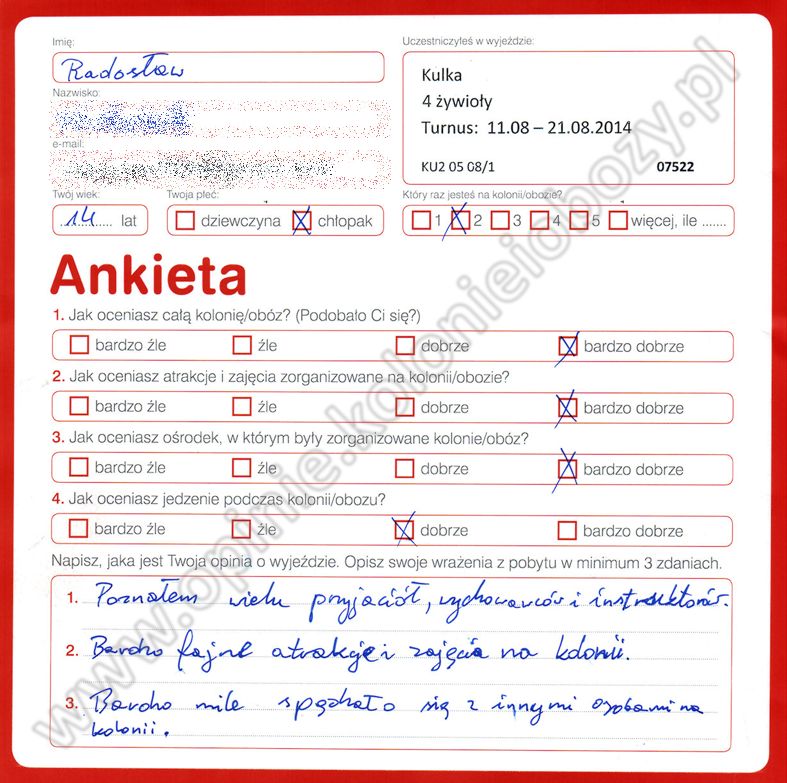 Imię:
Radosław
Nazwisko:
e-mail:
Twój wiek:
14 lat
Twoja płeć:
dziewczyna chłopak
Uczestniczyłeś w wyjeździe:
Kulka
4 żywioły
Turnus: 11.08 – 21.08.2014
KU2 05 08/1 07522
Który raz jesteś na kolonii/obozie?
1 2 3 4 5 więcej, ile .......
Ankieta
1. Jak oceniasz całą kolonię/obóz? (Podobało Ci się?)
bardzo źle źle dobrze bardzo dobrze
2. Jak oceniasz atrakcje i zajęcia zorganizowane na kolonii/obozie?
bardzo źle źle dobrze bardzo dobrze
3. Jak oceniasz ośrodek, w którym były zorganizowane kolonie/obóz?
bardzo źle źle dobrze bardzo dobrze
4. Jak oceniasz jedzenie podczas kolonii/obozu?
bardzo źle źle dobrze bardzo dobrze
Napisz, jaka jest Twoja opinia o wyjeździe. Opisz swoje wrażenia z pobytu w minimum 3 zdaniach.
1. Poznałem wielu przyjaciół, wychowawców i instruktorów.
2. Bardzo fajne atrakcje i zajęcia na kolonii.
3. Bardzo mile spędzało się z innymi osobami na
kolonii.
www.opinie.kolonieiobozy.pl